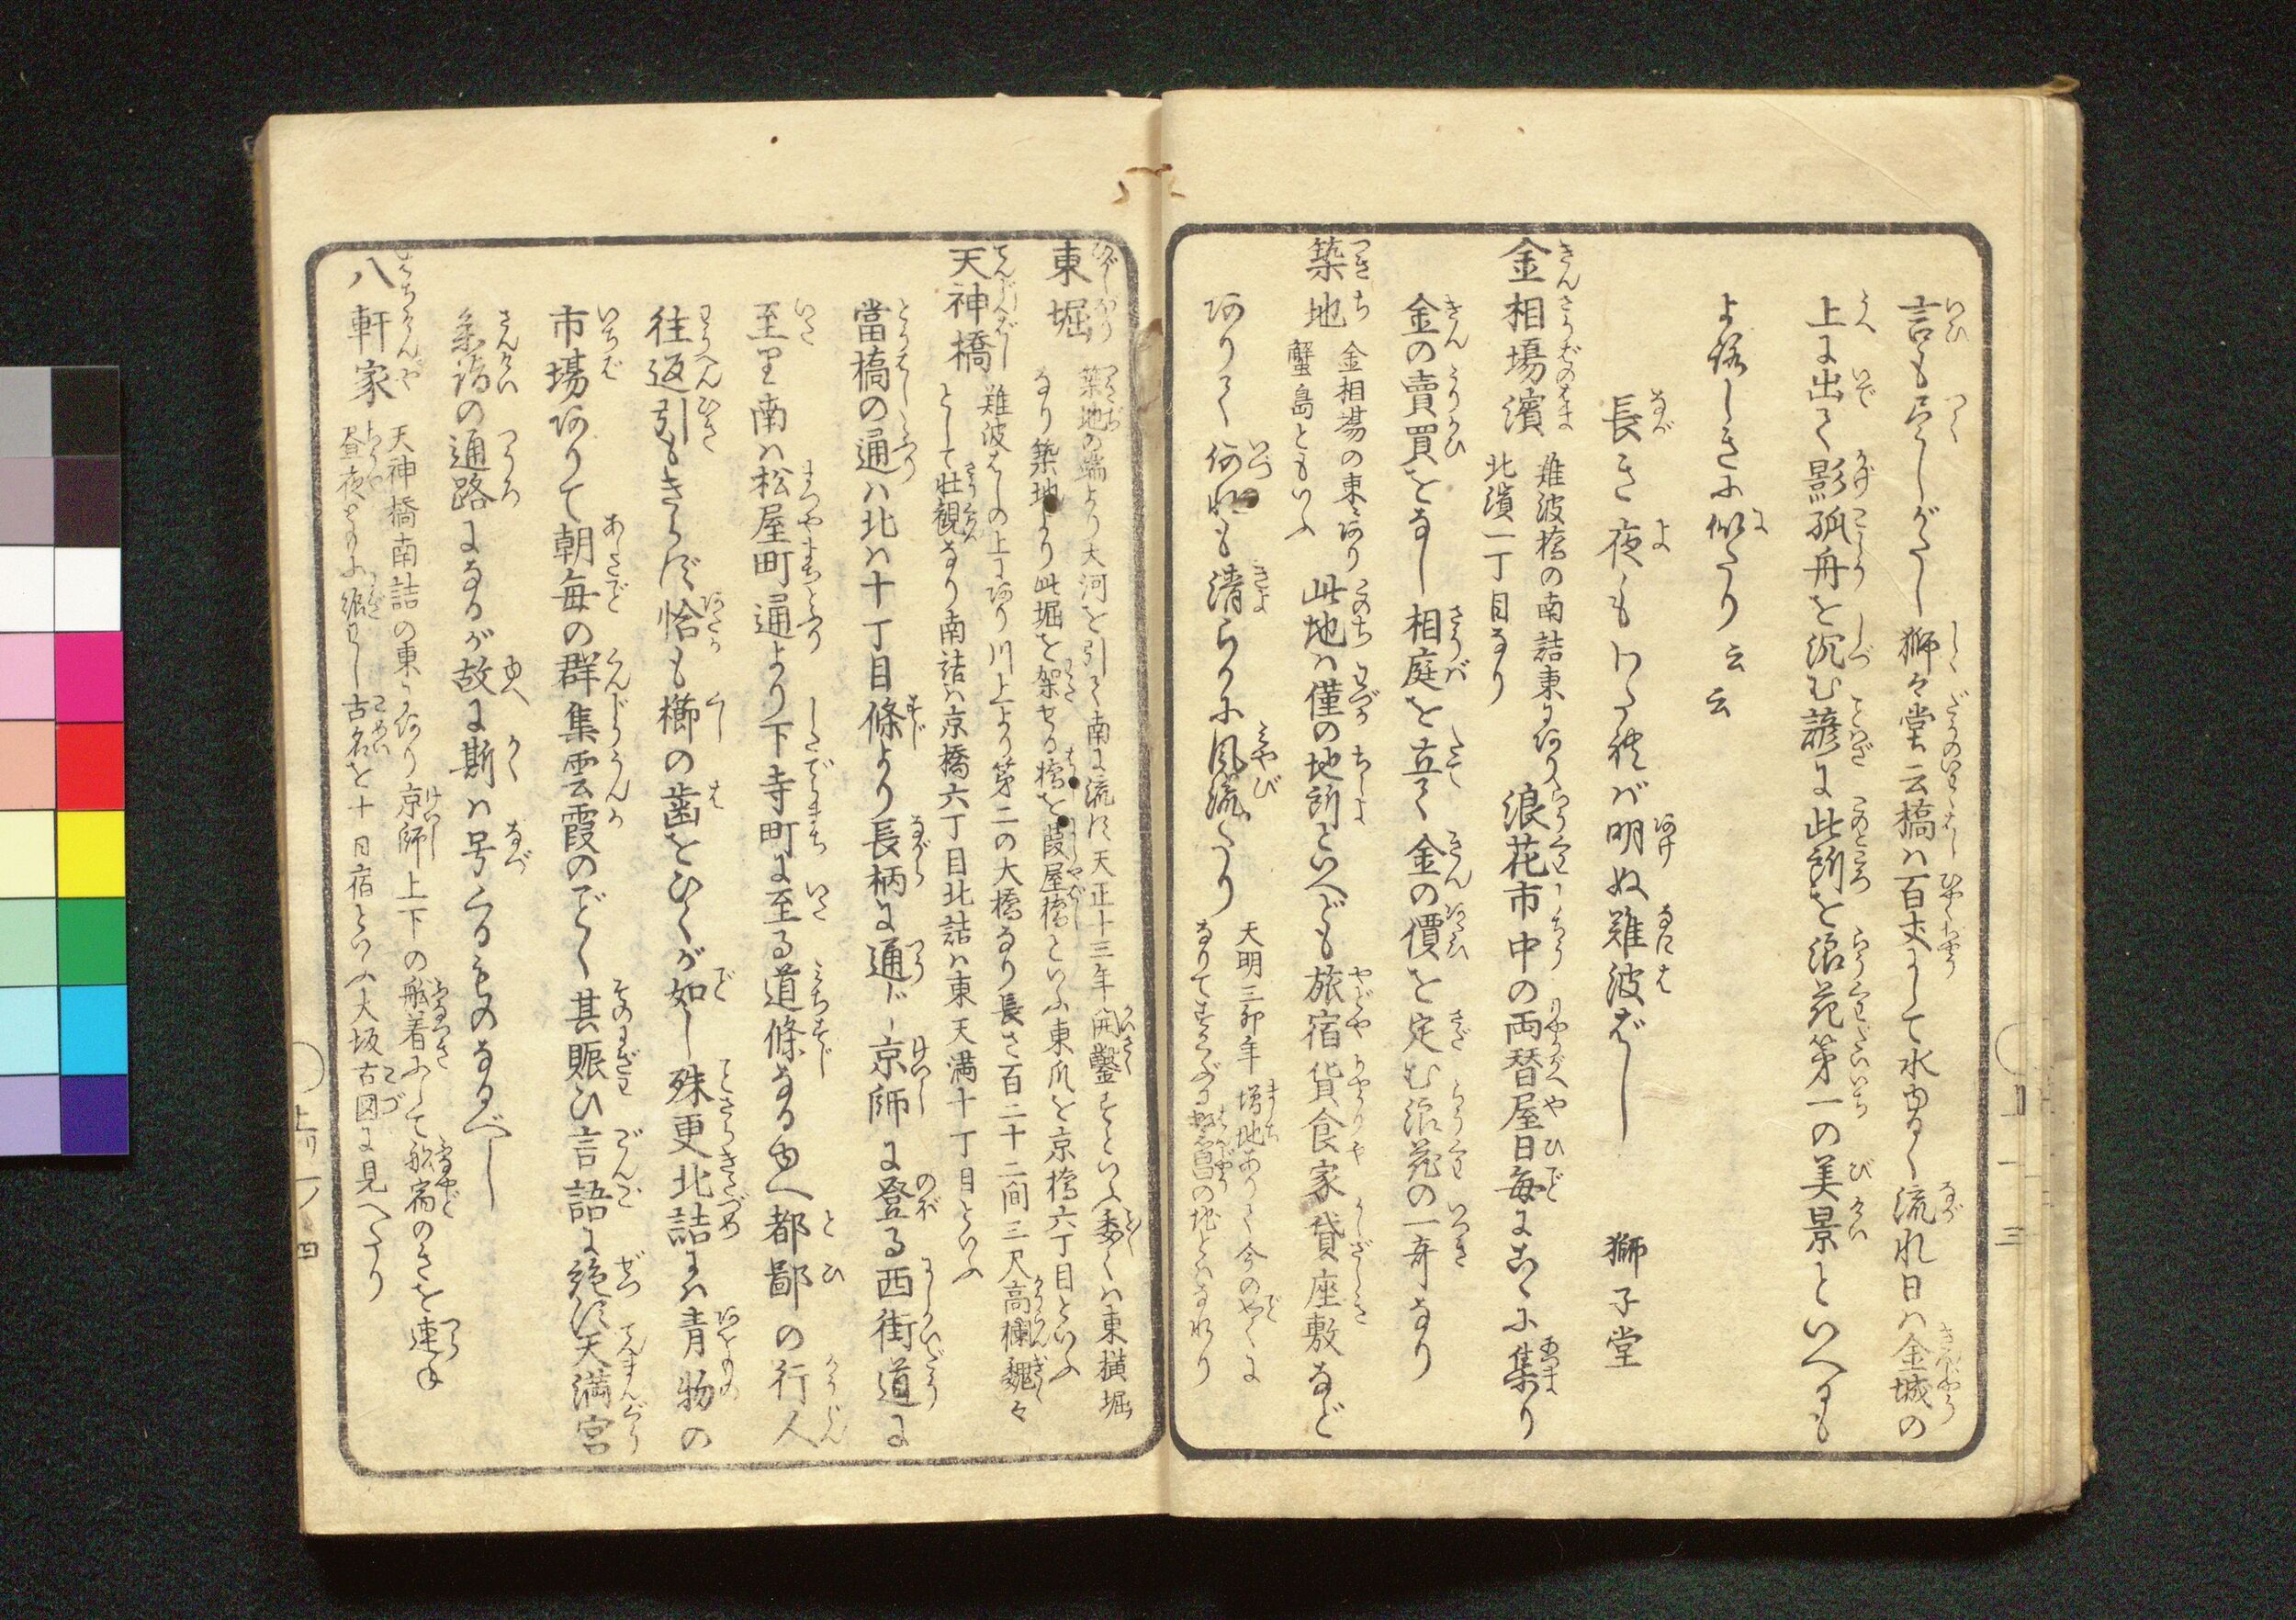 言も尽しがたし獅々堂云橋は百丈にして水由るく流れ日は金城の
上に出て影孤舟を沉む諺に此所を浪花第一の美景といへるも
よろしきに似たり云云
長き夜もわたれば明ぬ難波ばし　獅子堂
金相場濱
難波橋の南詰東にあり
北濱一丁目なり
浪花市中の両替屋日毎にこゝに集り
金の賣買をなし相庭を立て金の價を定む浪花の一奇なり
築地
金相場の東にあり
蟹島ともいふ
此地は僅の地所といへども旅宿貸食家貸座敷など
ありて何れも清らかに風流たり
天明三卯年増地ありて今のやくに
なりてますます繁昌の地とはなれり
東堀
築地の端より大河を引て南に流す天正十三年開鑿すといふ委くは東横堀
なり築地より此堀を架せる橋を葭屋橋といふ東爪を京橋六丁目といふ
天神橋
難波ばしの上にあり川上より第二の大橋なり長さ百二十二間三尺高欄巍々
として壮観なり南詰は京橋六丁目北詰は東天満十丁目といふ
當橋の通は北は十丁目條より長柄に通じ京師に登る西街道に
至り南は松屋町通より下寺町に至る道條なるゆへ都鄙の行人
往返引もきらず恰も櫛の歯をひくが如し殊更北詰には青物の
市場ありて朝毎の群集雲霞のごとく其賑ひ言語に絶す天満宮
参詣の通路になるが故に斯は号くるものなるべし
八軒家
天神橋南詰の東にあり京師上下の舩着にして舩宿のきを連ね
昼夜ともに賑はし古名を十日宿といふ大坂古図に見へたり
上リ一ノ四